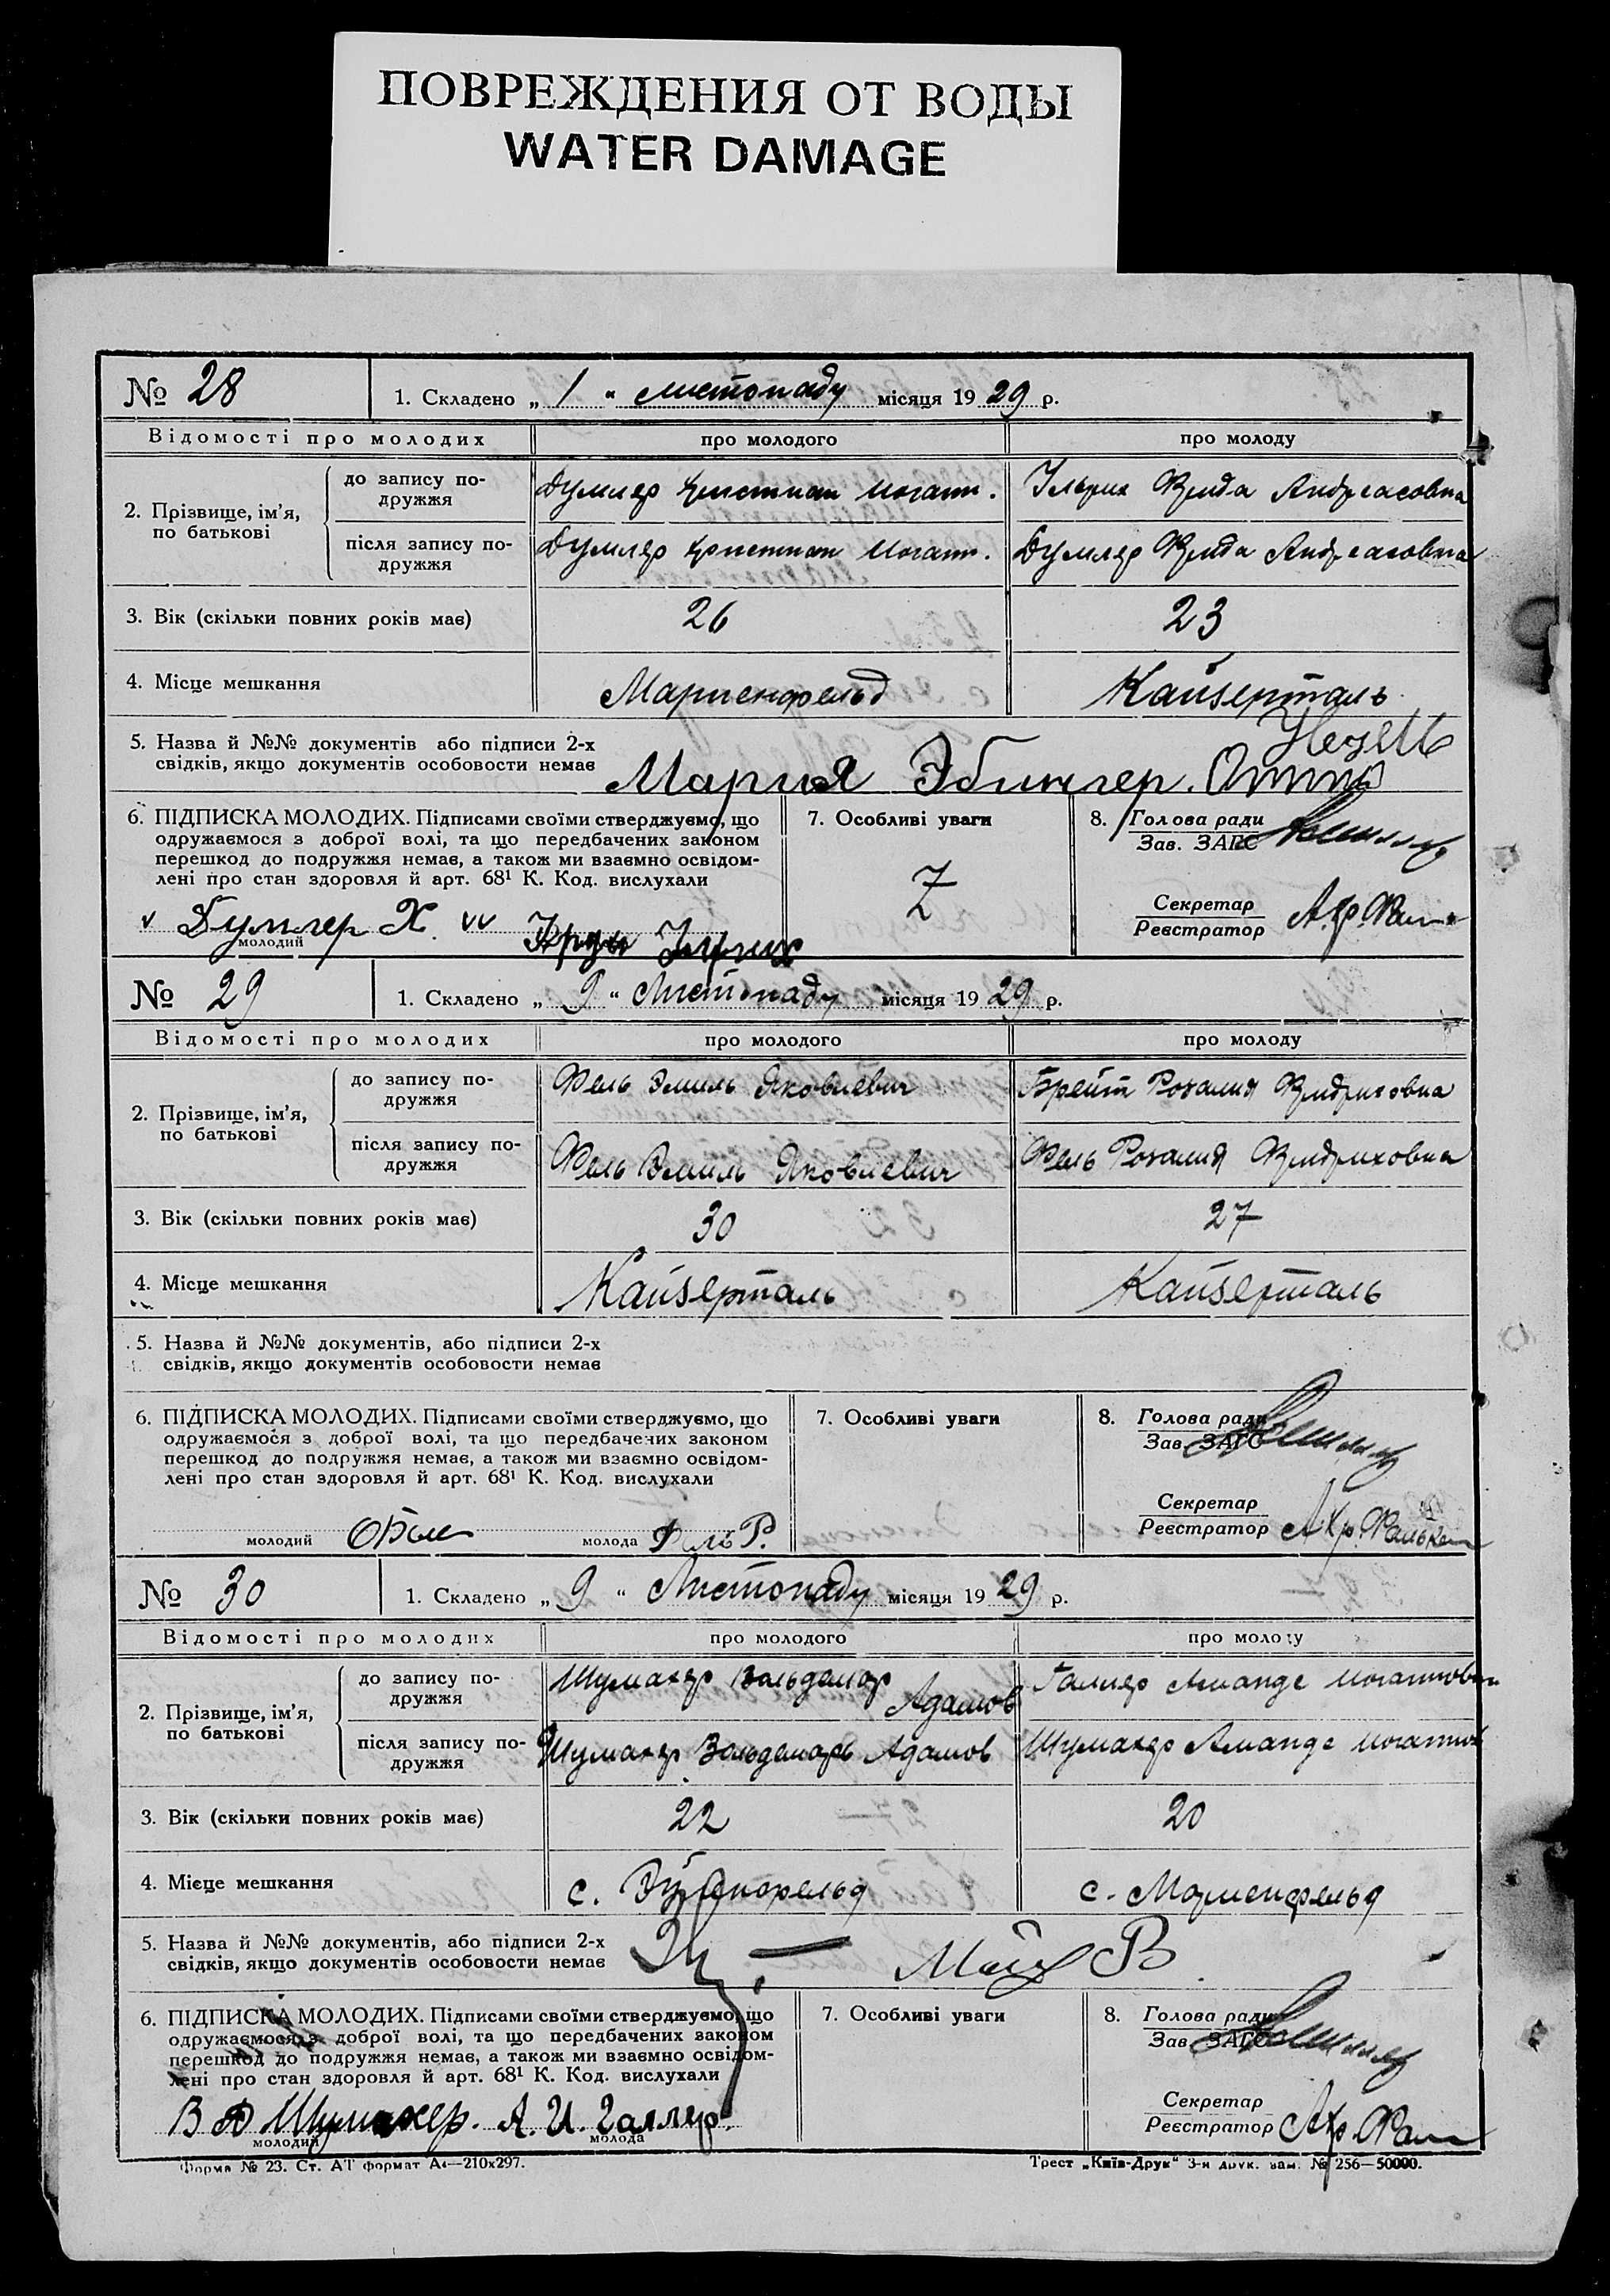 ПОВРЕЖДЕНИЯ ОТ ВОДЫ
WATER DAMAGE
№ 28
1. Складено „ 1 “ листопаду місяця 1929 р.
Відомості про молодих
про молодого
про молоду
2. Прізвище, ім’я, по батькові
до запису по-
дружжя
Думлер Христиан Иоганн.
Ульрих Фрида Андреасовна
після запису по-
дружжя
Думлер Христиан Иоганн.
Думлер Фрида Андреасовна
3. Вік (скільки повних років має)
26
23
4. Місце мешкання
Мариенфельд
Кайзерталь
5. Назва й №№ документів або підписи 2-х
свідків, якщо документів особовости немає
Мария Эбингер.
6. ПІДПИСКА МОЛОДИХ. Підписами своїми стверджуємо, що
одружаємося з доброї волі, та що передбачених законом
перешкод до подружжя немає, а також ми взаємно освідом-
лені про стан здоровля й арт. 68¹ К. Код. вислухали
Думлер Х.
молодий
7. Особливі уваги
8. Голова ради
Зав. ЗАГС
Секретар
Реєстратор
№ 29
1. Складено „ 9 “ Листопаду місяця 1929 р.
Відомості про молодих
про молодого
про молоду
2. Прізвище, ім’я,
по батькові
до запису по-
дружжя
Фель Эмиль Яковлевич
Брейт Розалия Фридриховна
після запису по-
дружжя
Фель Эмиль Яковлевич
Фель Розалия Фридриховна
3. Вік (скільки повних років має)
30
27
4. Місце мешкання
Кайзерталь
Кайзерталь
5. Назва й №№ документів, або підписи 2-х
свідків, якщо документів особовости немає
6. ПІДПИСКА МОЛОДИХ. Підписами своїми стверджуємо, що
одружаємося з доброї волі, та що передбачених законом
перешкод до подружжя немає, а також ми взаємно освідом-
лені про стан здоровля й арт. 68¹ К. Код. вислухали
молодий
молода Фель Р.
7. Особливі уваги
8. Голова ради
Зав. ЗАГС
Секретар
Реєстратор
№ 30
1. Складено „ 9 “ Листопаду місяця 1929 р.
Відомості про молодих
про молодого
про молоду
2. Прізвище, ім’я,
по батькові
до запису по-
дружжя
Шумахер Вольдемар
Адамов
Галлер Аманде Иоганновн
після запису по-
дружжя
Шумахер Вольдемарь Адамов
Шумахер Аманде Иоганнов
3. Вік (скільки повних років має)
22
20
4. Місце мешкання
с.
с. Мариенфельд
5. Назва й №№ документів, або підписи 2-х
свідків, якщо документів особовости немає
6. ПІДПИСКА МОЛОДИХ. Підписами своїми стверджуємо, що
одружаємося з доброї волі, та що передбачених законом
перешкод до подружжя немає, а також ми взаємно освідом-
лені про стан здоровля й арт. 68¹ К. Код. вислухали
В А Шумахер. А. И. Галлер.
молодий
молода
7. Особливі уваги
8. Голова ради
Зав. ЗАГС
Секретар
Реєстратор
Форма № 23. Ст. АТ формат А₄—210х297.
Трест „Київ-Друк“ 3-я друк. зам. № 256—50000.